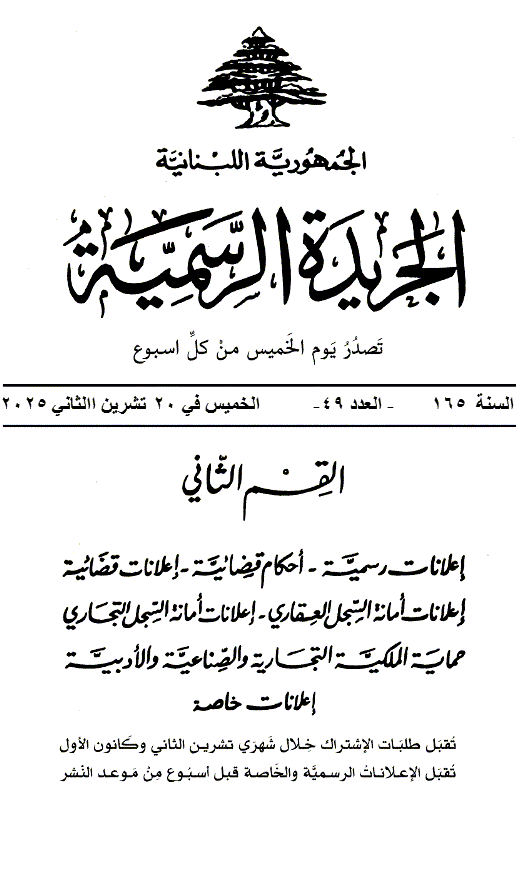 الجُمهُوريَّة اللبْنانيَّة
الجَريدَة الرسَّمِيَّة
تَصدُرُ يَوم الخَميس منْ كلِّ اسبوع
السنة ١٦٥ - العدد ٤٩- الخميس في ٢٠ تشرين االثاني ٢٠٢٥
القِسْم الثّاني
إعلانات رسميَّة - أحكام قضائيَّة - إعلانات قضائية
إعلانات أمانة السِّجل العقاري - إعلانات أمانة السِّجل التجاري
حماية الملكيَّة التجارية والصِّناعيَّة والأدبيَّة
إعلانات خاصة
تُقبَل طلبَات الإشتراك خِلال شَهرَي تشرين الثاني وكَانون الأول
تُقبَل الإعلاناتُ الرسميَّة والخَاصة قبل أسبُوع مِنْ مَوعد النّشر